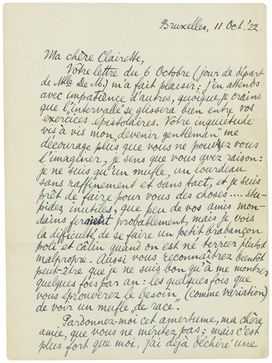 Bruxelles, 11 Oct. '22.
Ma chère Clairette,
Votre lettre du 6 Octobre (jour de départ
de Mlle De M.) m'a fait plaisir; j'en attends
avec impatience d'autres, quoique je crains
que l'intervalle se glissera bien entre vos
exercices épistolaires. Votre inquiétude
vis à vis mon "devenir gentleman" me
décourage plus que vous ne pouvez vous
l'imaginer, je sens que vous avez raison:
je ne suis qu'un mufle, un lourdeau
sans raffinement et sans tact, et je suis
prêt de faire pour vous des choses
inutiles, que peu de vos amis mon-
dains feraient probablement, mais je vois
la difficulté de se faire un petit brabançon
poli et câlin quand on est né terrier plutôt
malpropre. Aussi vous reconnaîtrez bientôt
peut-être que je ne suis bon qu'à me montrer
quelques fois par an: les quelques fois que
vous éprouverez le besoin, (comme variation)
de voir un mufle de race.
Pardonnez-moi cet amertume, ma chère
amie, que vous ne méritez pas; mais c'est
plus fort que moi, j'ai déjà déchiré une